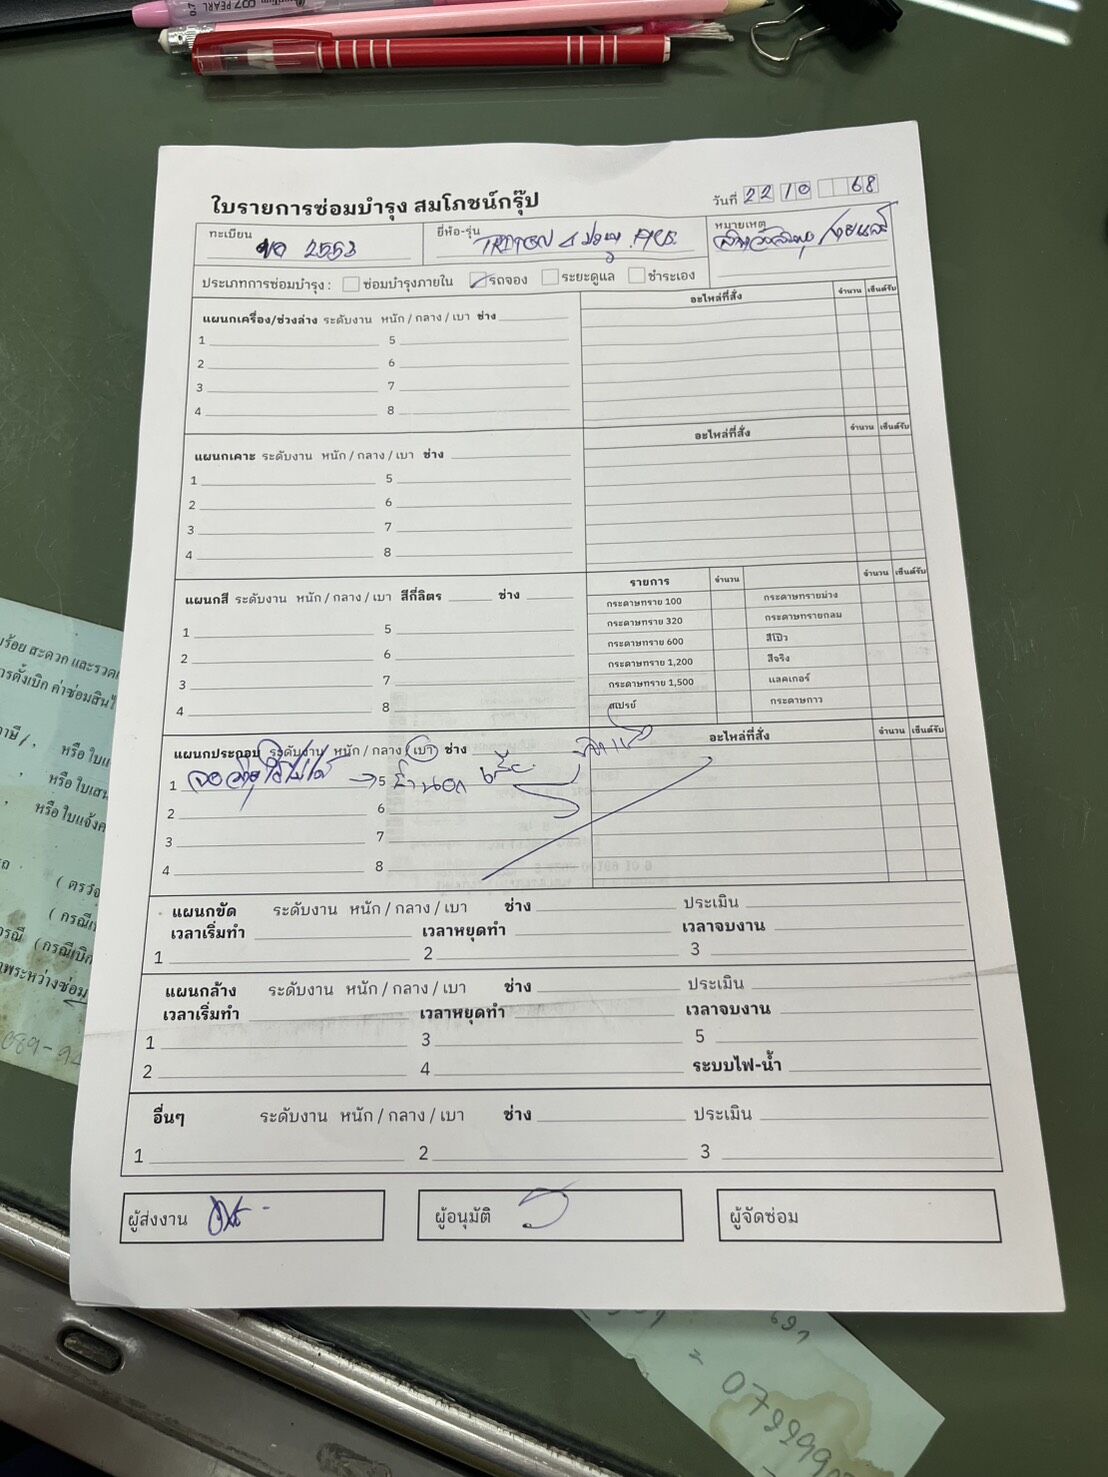 0.7 PEARL
ใบรายการซ่อมบำรุง สมโภชน์กรุ๊ป
วันที่ 22 10 68
ทะเบียน 2553
ยี่ห้อ-รุ่น TRITON 4 ประตู
หมายเหตุ
ประเภทการซ่อมบำรุง : ซ่อมบำรุงภายใน รถจอง ระยะดูแล ชำระเอง
แผนกเครื่อง/ช่วงล่าง ระดับงาน หนัก / กลาง / เบา ช่าง
อะไหล่ที่สั่ง จำนวน เซ็นต์รับ
1 5
2 6
3 7
4 8
แผนกเคาะ ระดับงาน หนัก / กลาง / เบา ช่าง
อะไหล่ที่สั่ง จำนวน เซ็นต์รับ
1 5
2 6
3 7
4 8
แผนกสี ระดับงาน หนัก / กลาง / เบา สีกี่ลิตร ช่าง
1 5
2 6
3 7
4 8
รายการ จำนวน จำนวน เซ็นต์รับ
กระดาษทราย 100 กระดาษทรายม่วง
กระดาษทราย 320 กระดาษทรายกลม
กระดาษทราย 600 สีโป๊ว
กระดาษทราย 1,200 สีจริง
กระดาษทราย 1,500 แลคเกอร์
สเปรย์ กระดาษกาว
แผนกประกอบ ระดับงาน หนัก / กลาง / เบา ช่าง
อะไหล่ที่สั่ง จำนวน เซ็นต์รับ
1 5
2 6
3 7
4 8
แผนกขัด ระดับงาน หนัก / กลาง / เบา ช่าง ประเมิน
เวลาเริ่มทำ เวลาหยุดทำ เวลาจบงาน
1 2 3
แผนกล้าง ระดับงาน หนัก / กลาง / เบา ช่าง ประเมิน
เวลาเริ่มทำ เวลาหยุดทำ เวลาจบงาน
1 3 5
2 4 ระบบไฟ-น้ำ
อื่นๆ ระดับงาน หนัก / กลาง / เบา ช่าง ประเมิน
1 2 3
ผู้ส่งงาน
ผู้อนุมัติ
ผู้จัดซ่อม
สะดวก และรวด
การตั้งเบิก ค่าซ่อมสิน
หรือ ใบ
หรือ ใบเสน
หรือ ใบแจ้งค
( ตรว
( กรณี
(กรณีเบิก
ระหว่างซ่อม
089-